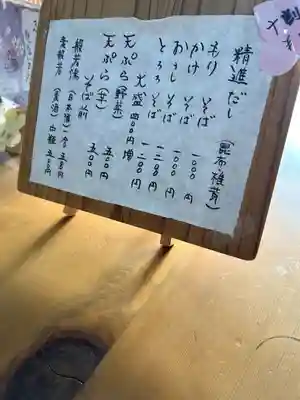 精進だし（昆布椎茸）
もりそば 一〇〇〇円
かけそば 一〇〇〇円
おろしそば 一二〇〇円
とろろそば 一二〇〇円
大盛 四〇〇円増
天ぷら（野菜）
天ぷら 五〇〇円
そば前
般若湯（日本酒）一合 五五〇円
麦般若（麦酒）小瓶 五五〇円